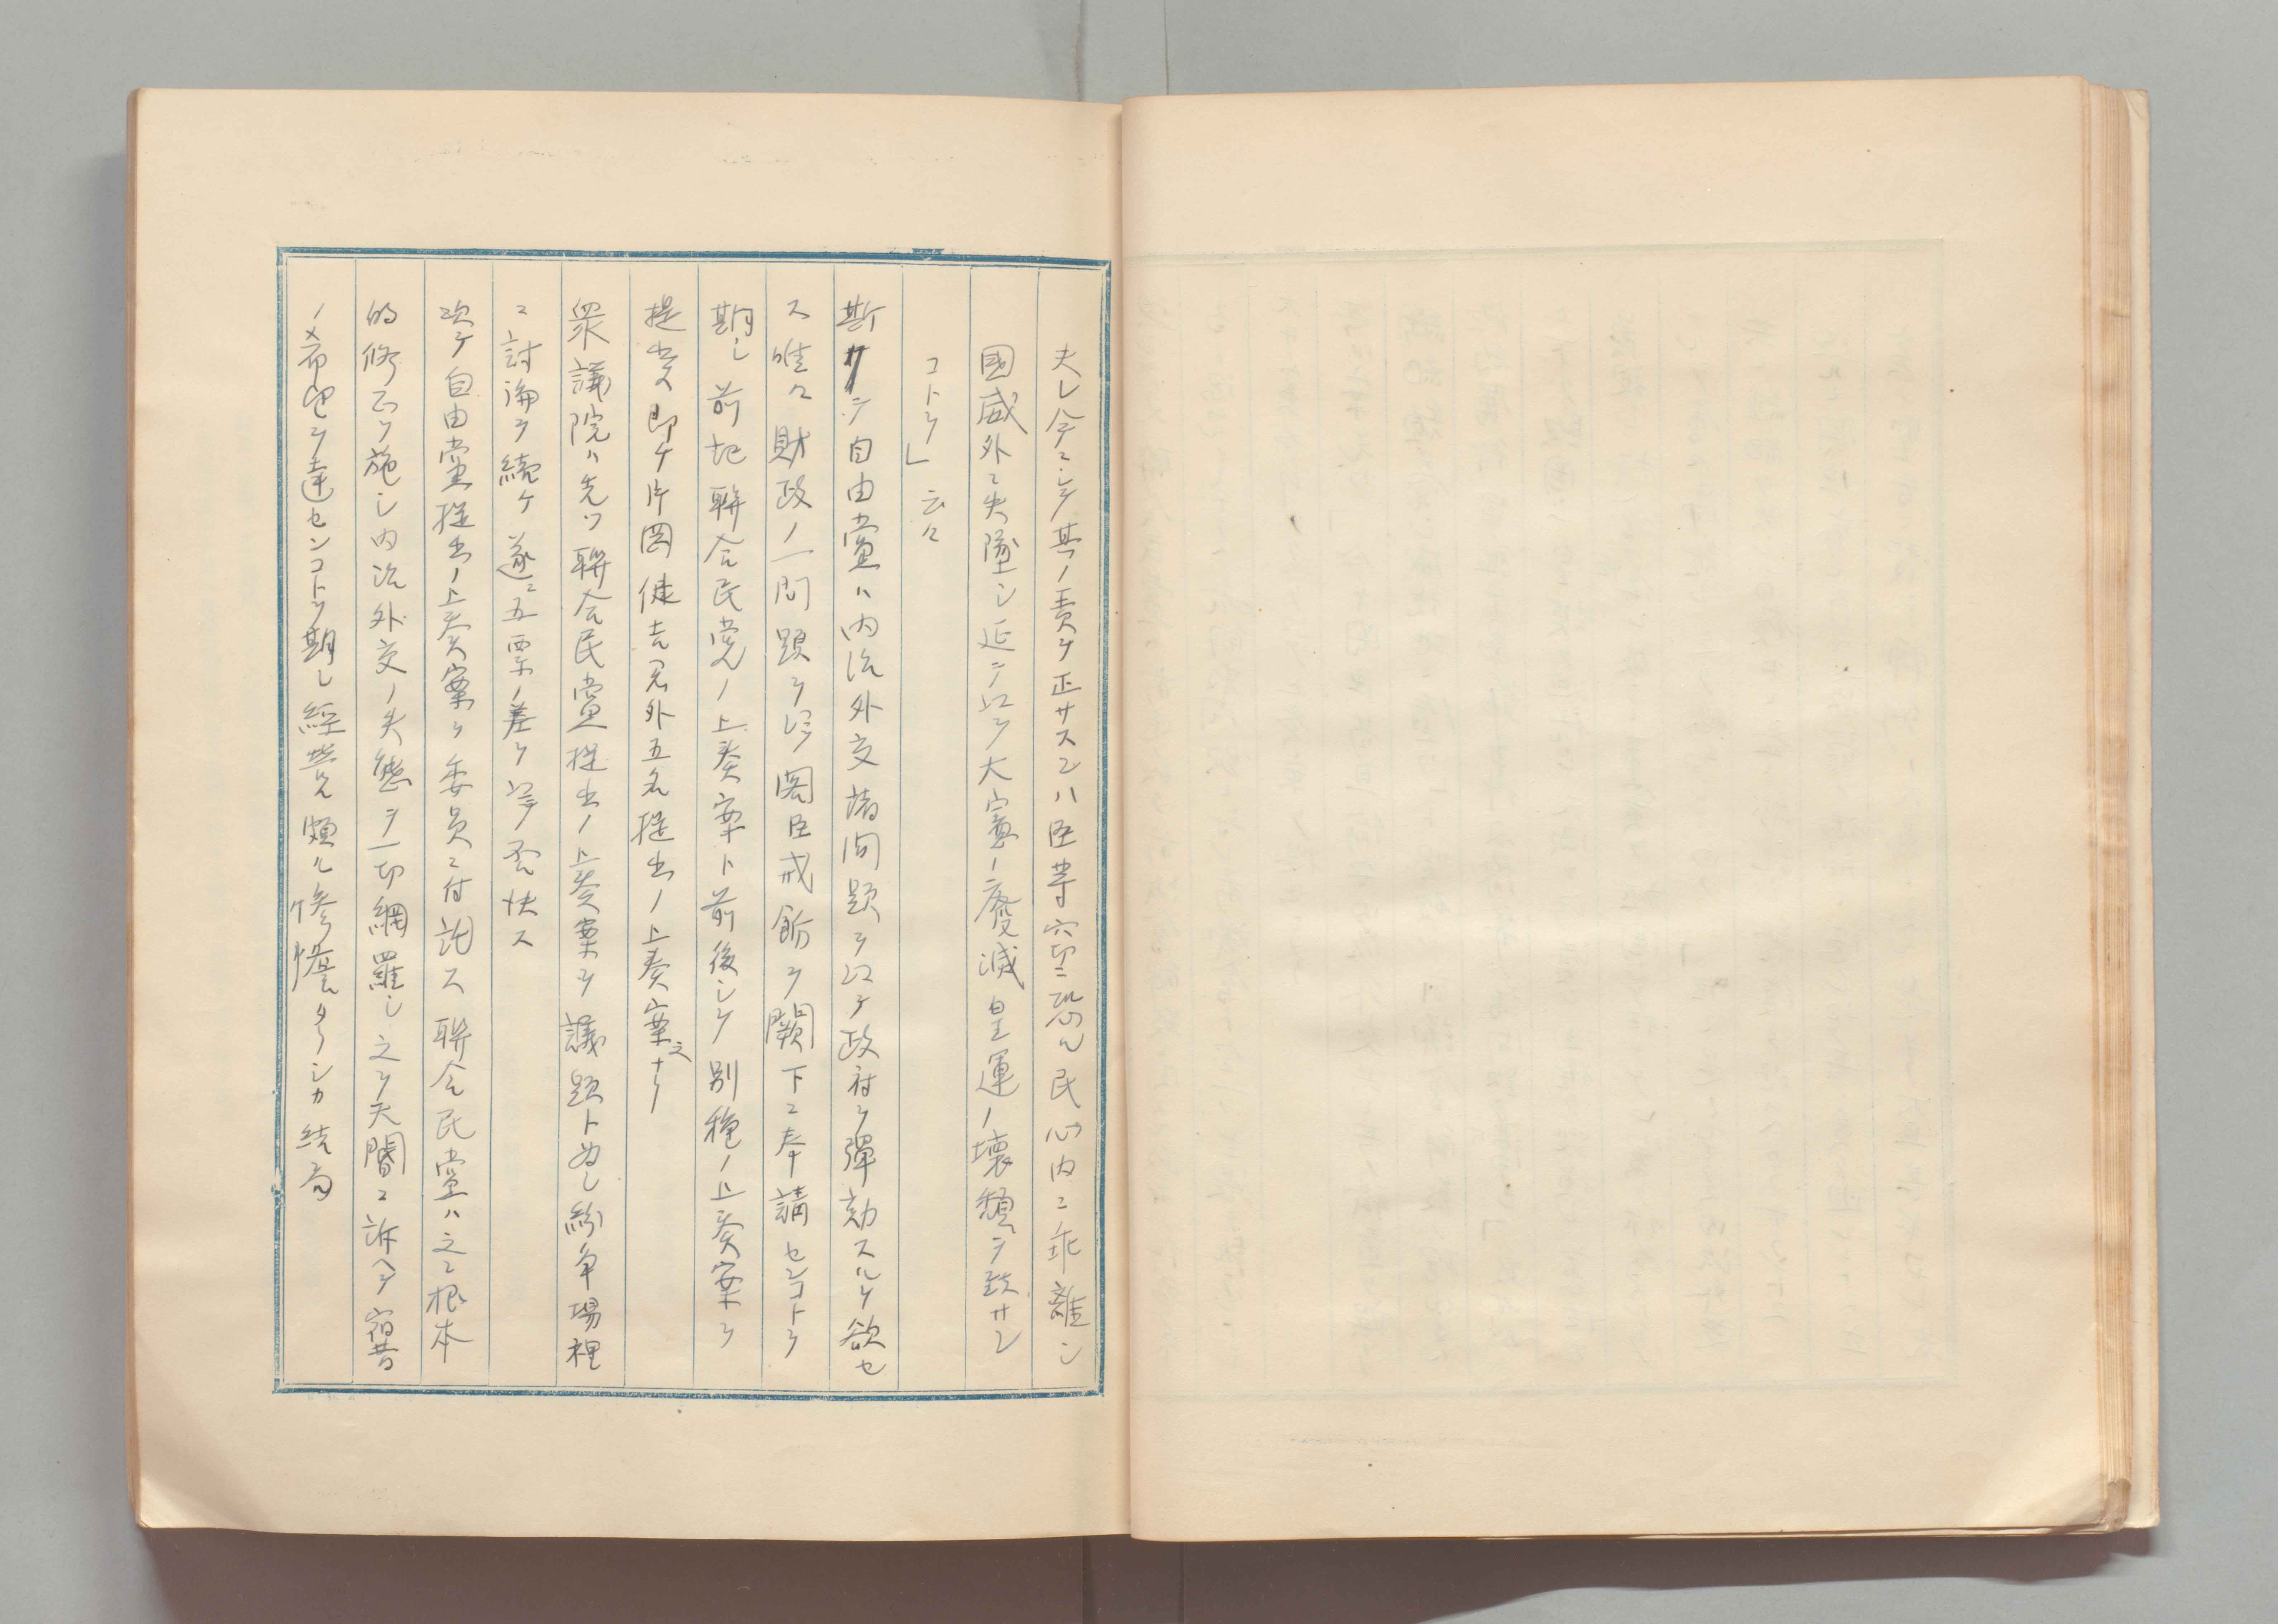 夫レ今ニシテ其ノ責ヲ正サスンハ臣等窃ニ恐ル民心内ニ乖離シ
國威外ニ失墜シ延テ以テ大憲ノ廢滅皇運ノ壊頽ヲ致サン
コトヲ」云々
斯クテ自由黨ハ内治外交諸問題ヲ以テ政府ヲ彈劾スルヲ欲セ
ス唯々財政ノ一問題ヲ以テ閣臣戒飭ヲ闕下ニ奉請センコトヲ
期シ前記聯合民党ノ上奏案ト前後シテ別種ノ上奏案ヲ
提出ス即チ片岡健吉君外五名提出ノ上奏案之ナリ
衆議院ハ先ツ聯合民黨提出ノ上奏案ヲ議題ト為シ紛争場裡
ニ討論ヲ続ケ遂ニ五票ノ差ヲ以テ否決ス
次テ自由黨提出ノ上奏案ヲ委員ニ付託ス聯合民黨ハ之ニ根本
的修正ヲ施シ内治外交ノ失態ヲ一切網羅シ之ヲ天閽ニ訴ヘテ宿昔
ノ希望ヲ達センコトヲ期シ経営頗ル惨憺タリシカ結局